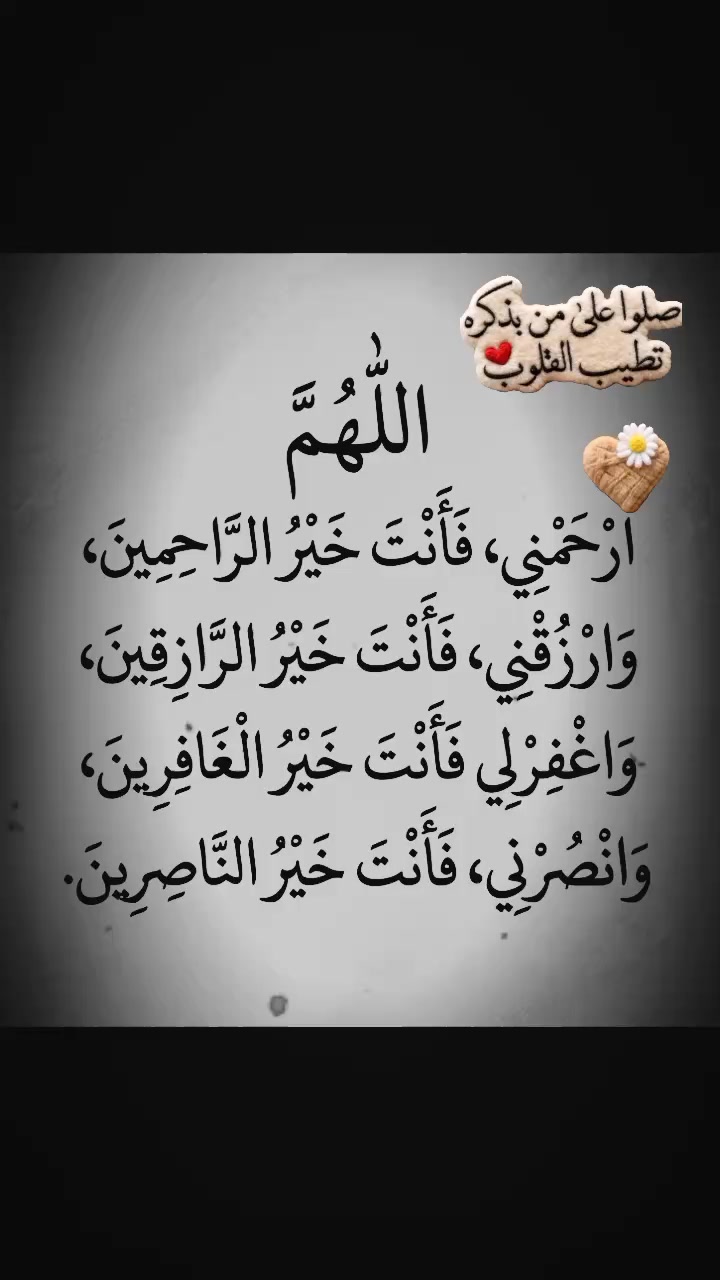 صلوا على من بذكره
تطيب القلوب
اللّٰهُمَّ
ارْحَمْنِي، فَأَنْتَ خَيْرُ الرَّاحِمِينَ،
وَارْزُقْنِي، فَأَنْتَ خَيْرُ الرَّازِقِينَ،
وَاغْفِرْلِي فَأَنْتَ خَيْرُ الْغَافِرِينَ،
وَانْصُرْنِي، فَأَنْتَ خَيْرُ النَّاصِرِينَ.